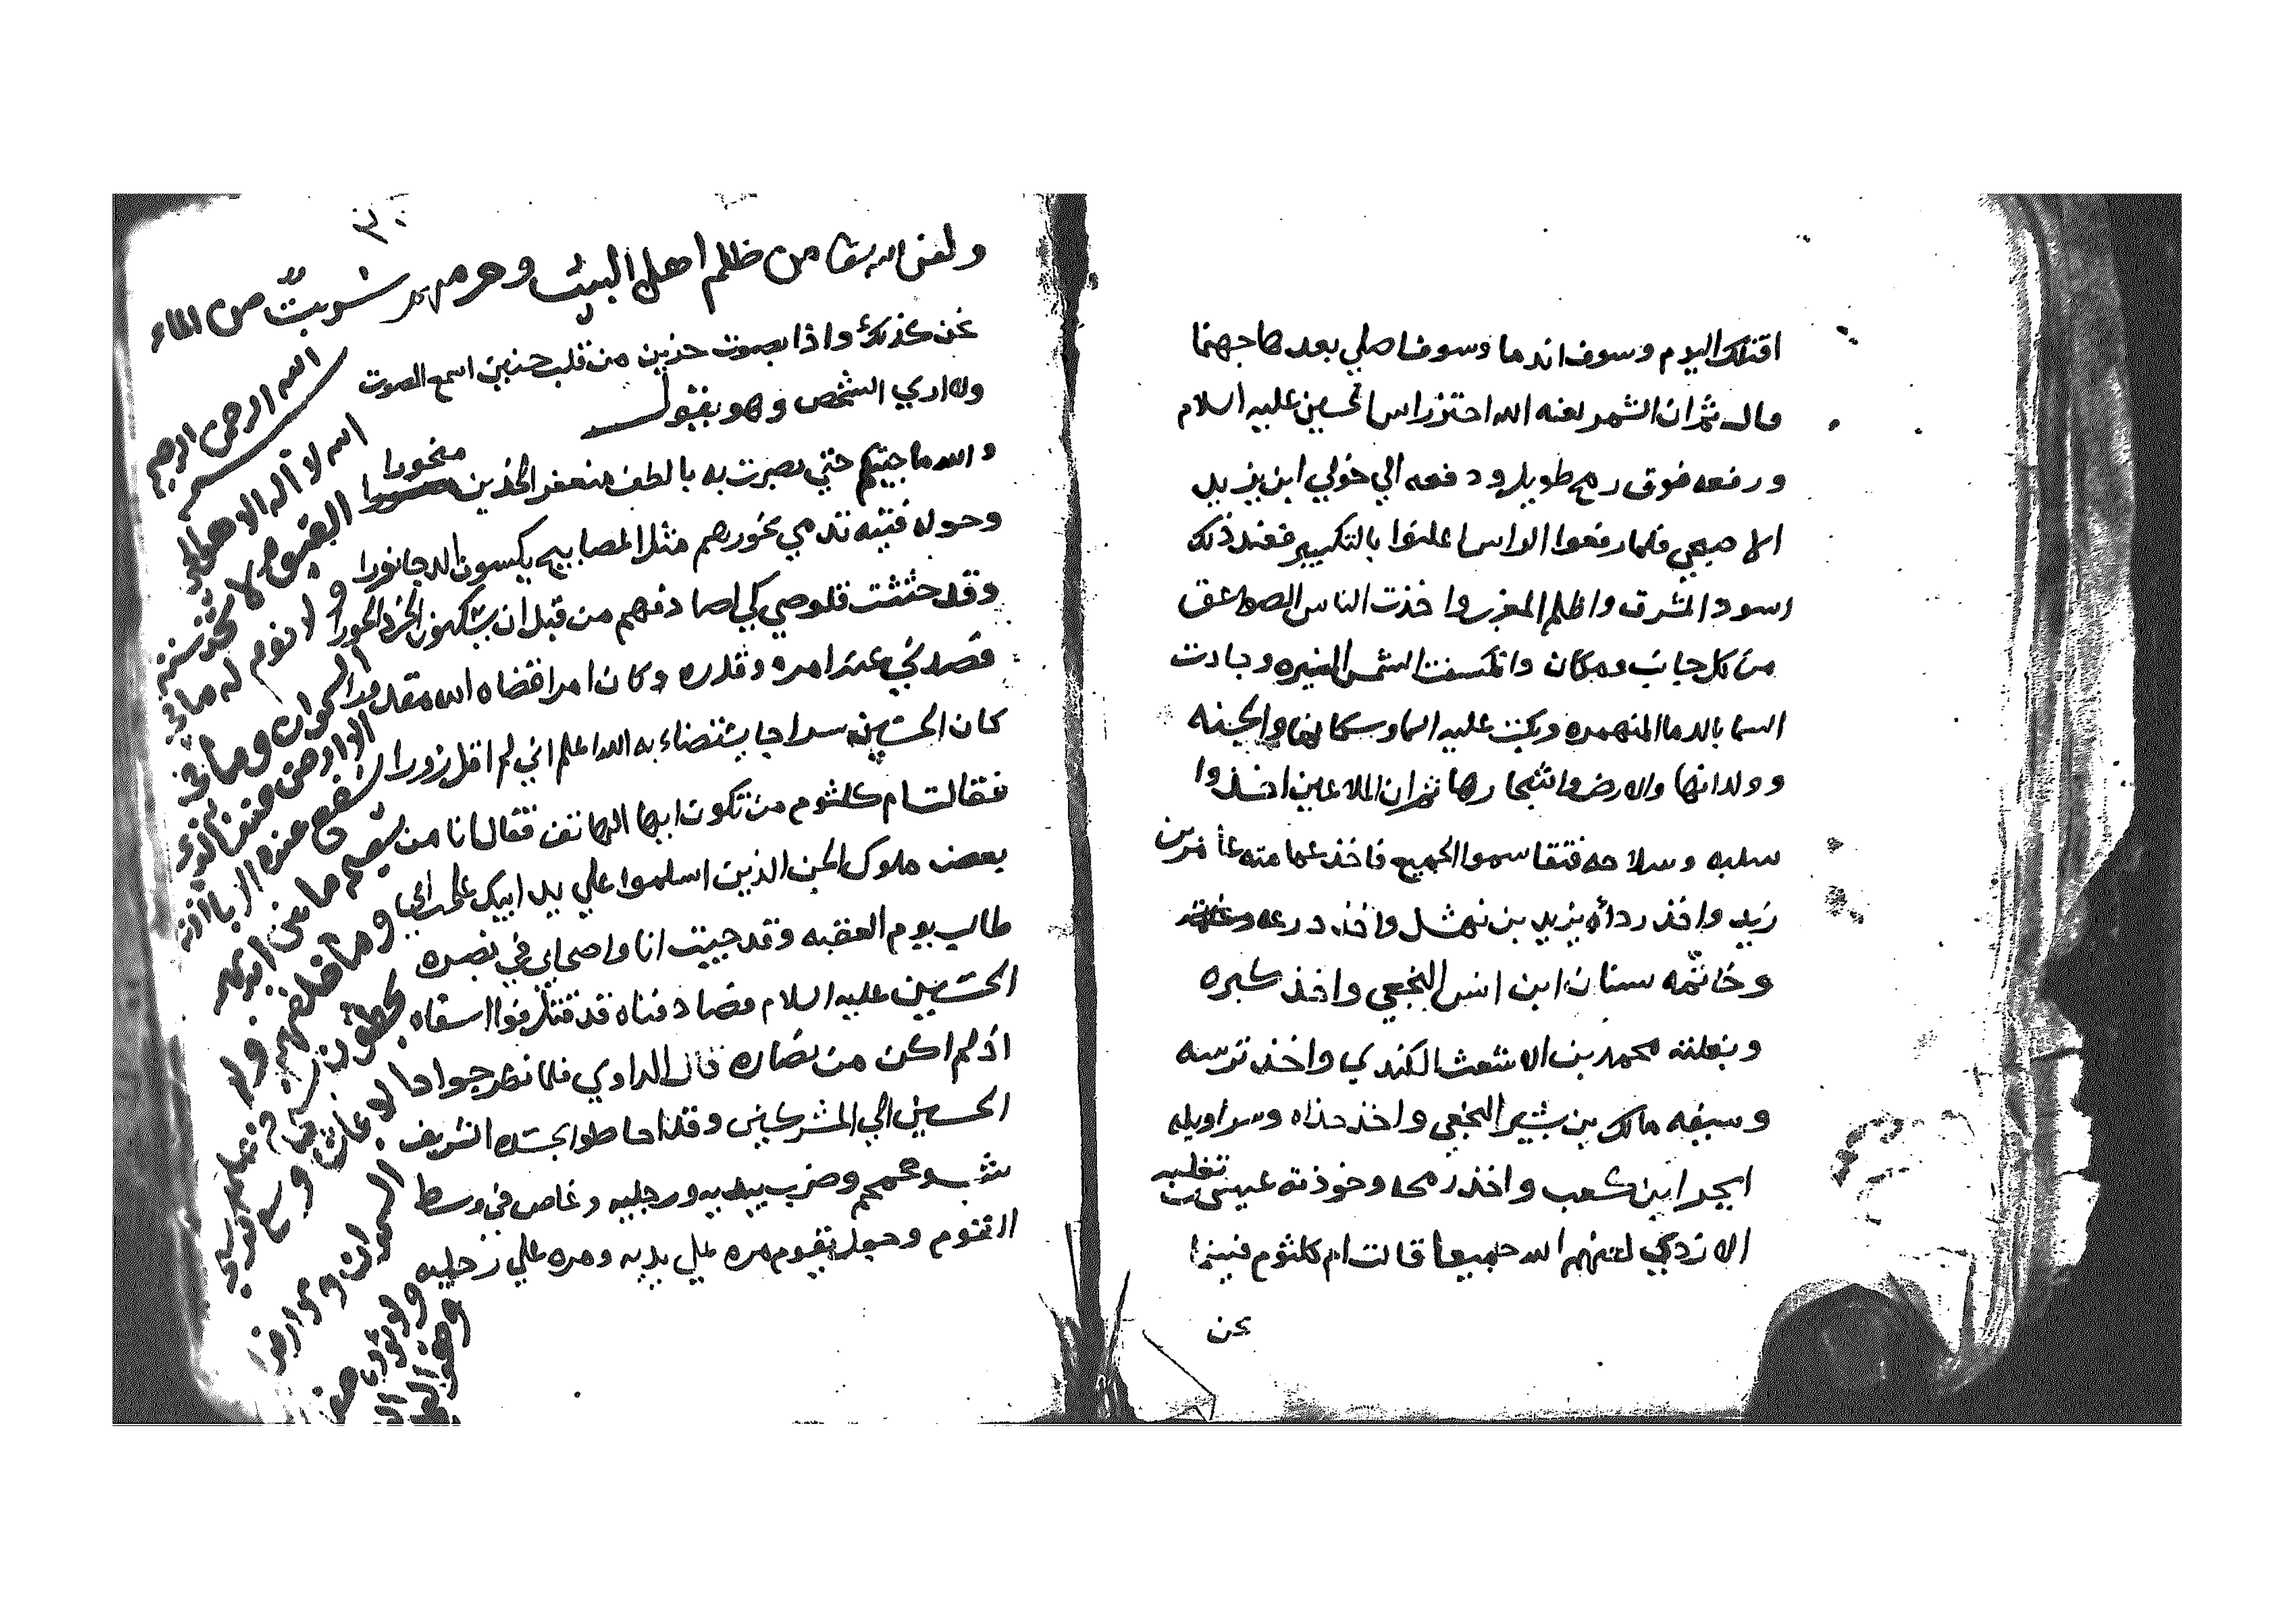 اقتلك اليوم وسوف اندما وسوف اصلي بعدها جهنما
قال ثم ان الشمر لعنه الله احتز راس الحسين عليه السلام
ورفعه فوق رمح طويل ودفعه الي خولي ابن يزيد
الاصبحي فلما رفعوا الراس اعلنوا بالتكبير فعند ذلك
اسود المشرق واظلم المغرب واخذت الناس الصواعق
من كل جانب ومكان وانكسفت الشمس المنيره وجادت
السما بالدما المنهمره وبكت عليه السما وسكانها والجنه
وولدانها والارض واشجارها ثم ان الملاعين اخذوا
سلبه وسلاحه فتقاسموا الجميع فاخذ عمامته
زيد واخذ رداه يزيد بن نهشل واخذ درعه
وخاتمه سنان ابن انس النخعي واخذ
ونعلته محمد بن الاشعث الكندي واخذ ترسه
وسيفه مالك بن بشير النخعي واخذ حذاه وسراويله
ابجر ابن كعب واخذ رمحه وخوذته
الازدي لعنهم الله جميعا قالت ام كلثوم فبينما
نحن
٣٠
ولعن الله من ظلم اهل البيت وحرمهم شربتً من الماء
نحن كذلك واذا بصوت حزين من قلب حنين اسمع الصوت
ولا اري الشخص وهو يقول
والله ما جيتكم حتي بصرت به بالطف منعفر الخدين منحورا
وحوله فتيه تدمي نحورهم مثل المصابيح يكسون الدجا نورا
وقد حثثت قلوصي كي اصادفهم من قبل ان ينكحون الخرد الحورا
فصدني عند امره وقدره وكان امرا قضاه الله مقدورا
كان الحسين سراجا يستضاء به الله اعلم اني لم اقل زورا
فقالت ام كلثوم من تكون ايها الهاتف فقال انا من
بعض ملوك الجن الذين اسلموا علي يد ابيك علي ابن ابي
طالب يوم العقبه وقد جيت انا واصحابي في نصره
الحسين عليه السلام فصادفناه قد قتل فوا اسفاه
اذ لم اكن من نصاره قال الراوي فلما نظر جواد
الحسين الي المشركين وقد احاطوا بجسده الشريف
شب وحمحم وضرب بيديه ورجليه وغاص في وسط
القوم وجعل يقوم مره علي يديه ومره علي رجليه
بسم الله الرحمن الرحيم
الله لا اله الا هو الحي
القيوم لا تاخذه سنة
ولا نوم له ما في
السموات وما في
الارض من ذا الذي
يشفع عنده الا باذنه
يعلم ما بين ايديهم
وما خلفهم ولا
يحيطون بشي من علمه
الا بما شاء وسع كرسيه
السموات والارض
ولا يؤده حفظهما
وهو العلي